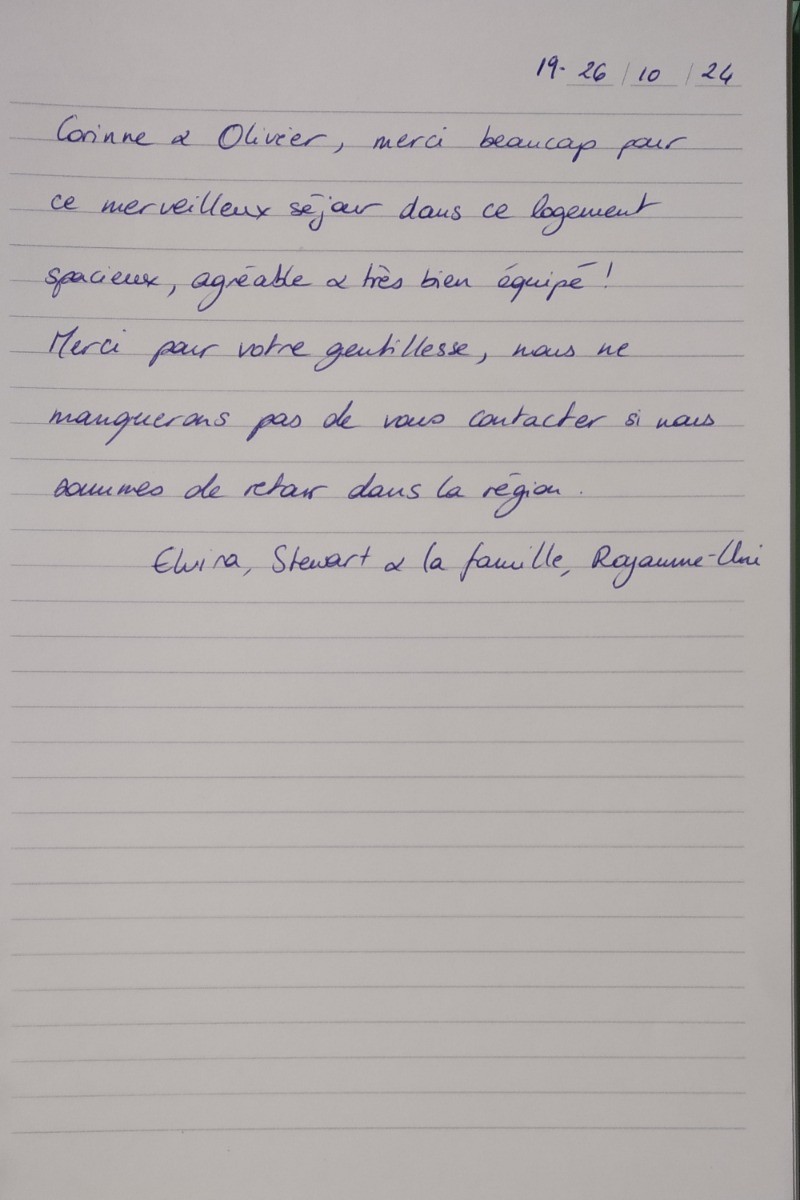 19-26/10/24
Corinne & Olivier, merci beaucoup pour
ce merveilleux séjour dans ce logement
spacieux, agréable & très bien équipé !
Merci pour votre gentillesse, nous ne
manquerons pas de vous contacter si nous
sommes de retour dans la région.
Elvira, Stewart & la famille, Royaume-Uni